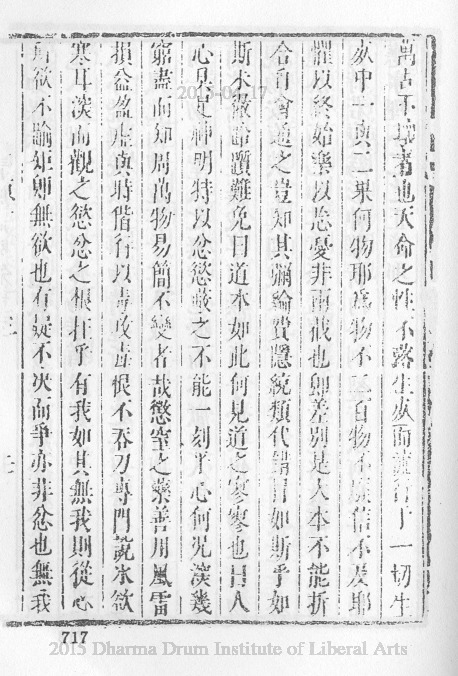 萬古不壞者也天命之性不落生死而流行于一切生
死中一真二果何物耶為物不二百物不廢信不及耶
懼以終始樂以忘憂非兩截也卽差別是大本不能折
合自會通之豈知其彌綸費隱統類代錯皆如斯乎如
斯未徹喑讚難免曰道本如此何見道之寥寥也吾人
心具足神明特以忿慾蔽之不能一刻平心何况深幾
窮盡而知周萬物易簡不變者哉懲窒之藥善用風雷
損益盈虛與時偕行以毒攻毒恨不吞刀專門說氷欲
寒耳淡而觀之慾忿之根在乎有我如其無我則從心
所欲不踰矩則無欲也有疑不決而爭亦非忿也無我
717
2015-04-17
2015 Dharma Drum Institute of Liberal Arts